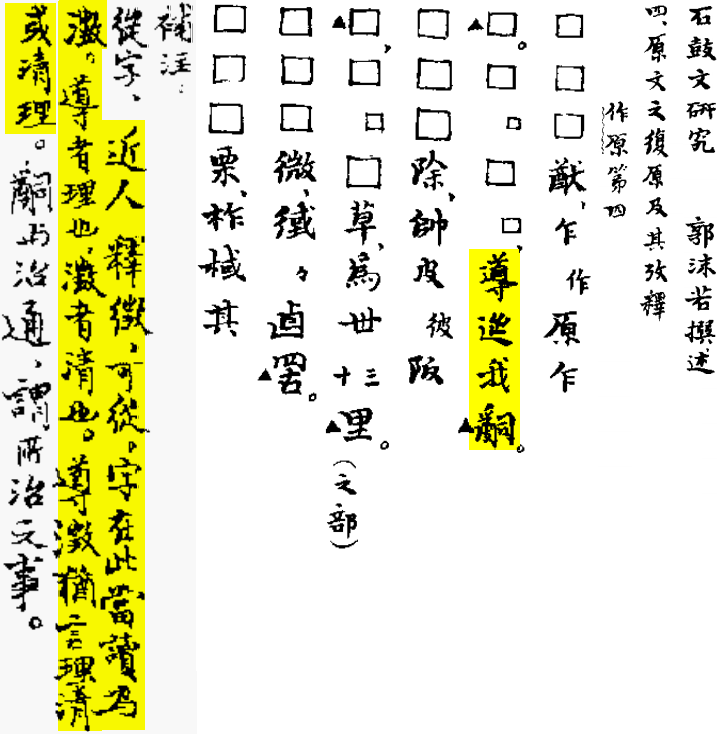 石鼓文研究 郭沫若撰述
四、原文之復原及其攷釋
作原第四
□□□猷,乍作原乍
▲□。□□□□,導我▲嗣。
□□□除,帥皮彼阪
▲□,□□□草,為世三十▲里。(之部)
□□□微,々▲卣罟。
□□□栗,柞棫其
補注:
字、近人釋徵,可從。字在此當讀為
澂。導者理也,澂者清也。導澂猶言理清
或清理。嗣與治通,謂所治之事。